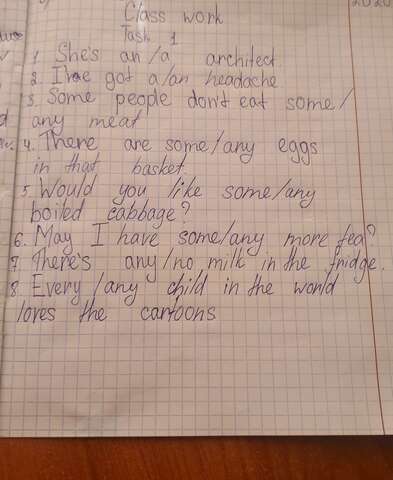 Class work
Task 1
1. She's an/a architect.
2. I've got a/an headache
3. Some people don't eat some/
any meat
4. There are some/any eggs
in that basket.
5. Would you like some/any
boiled cabbage?
6. May I have some/any more tea?
7. There's any/no milk in the fridge.
8 Every/any child in the world
loves the cartoons